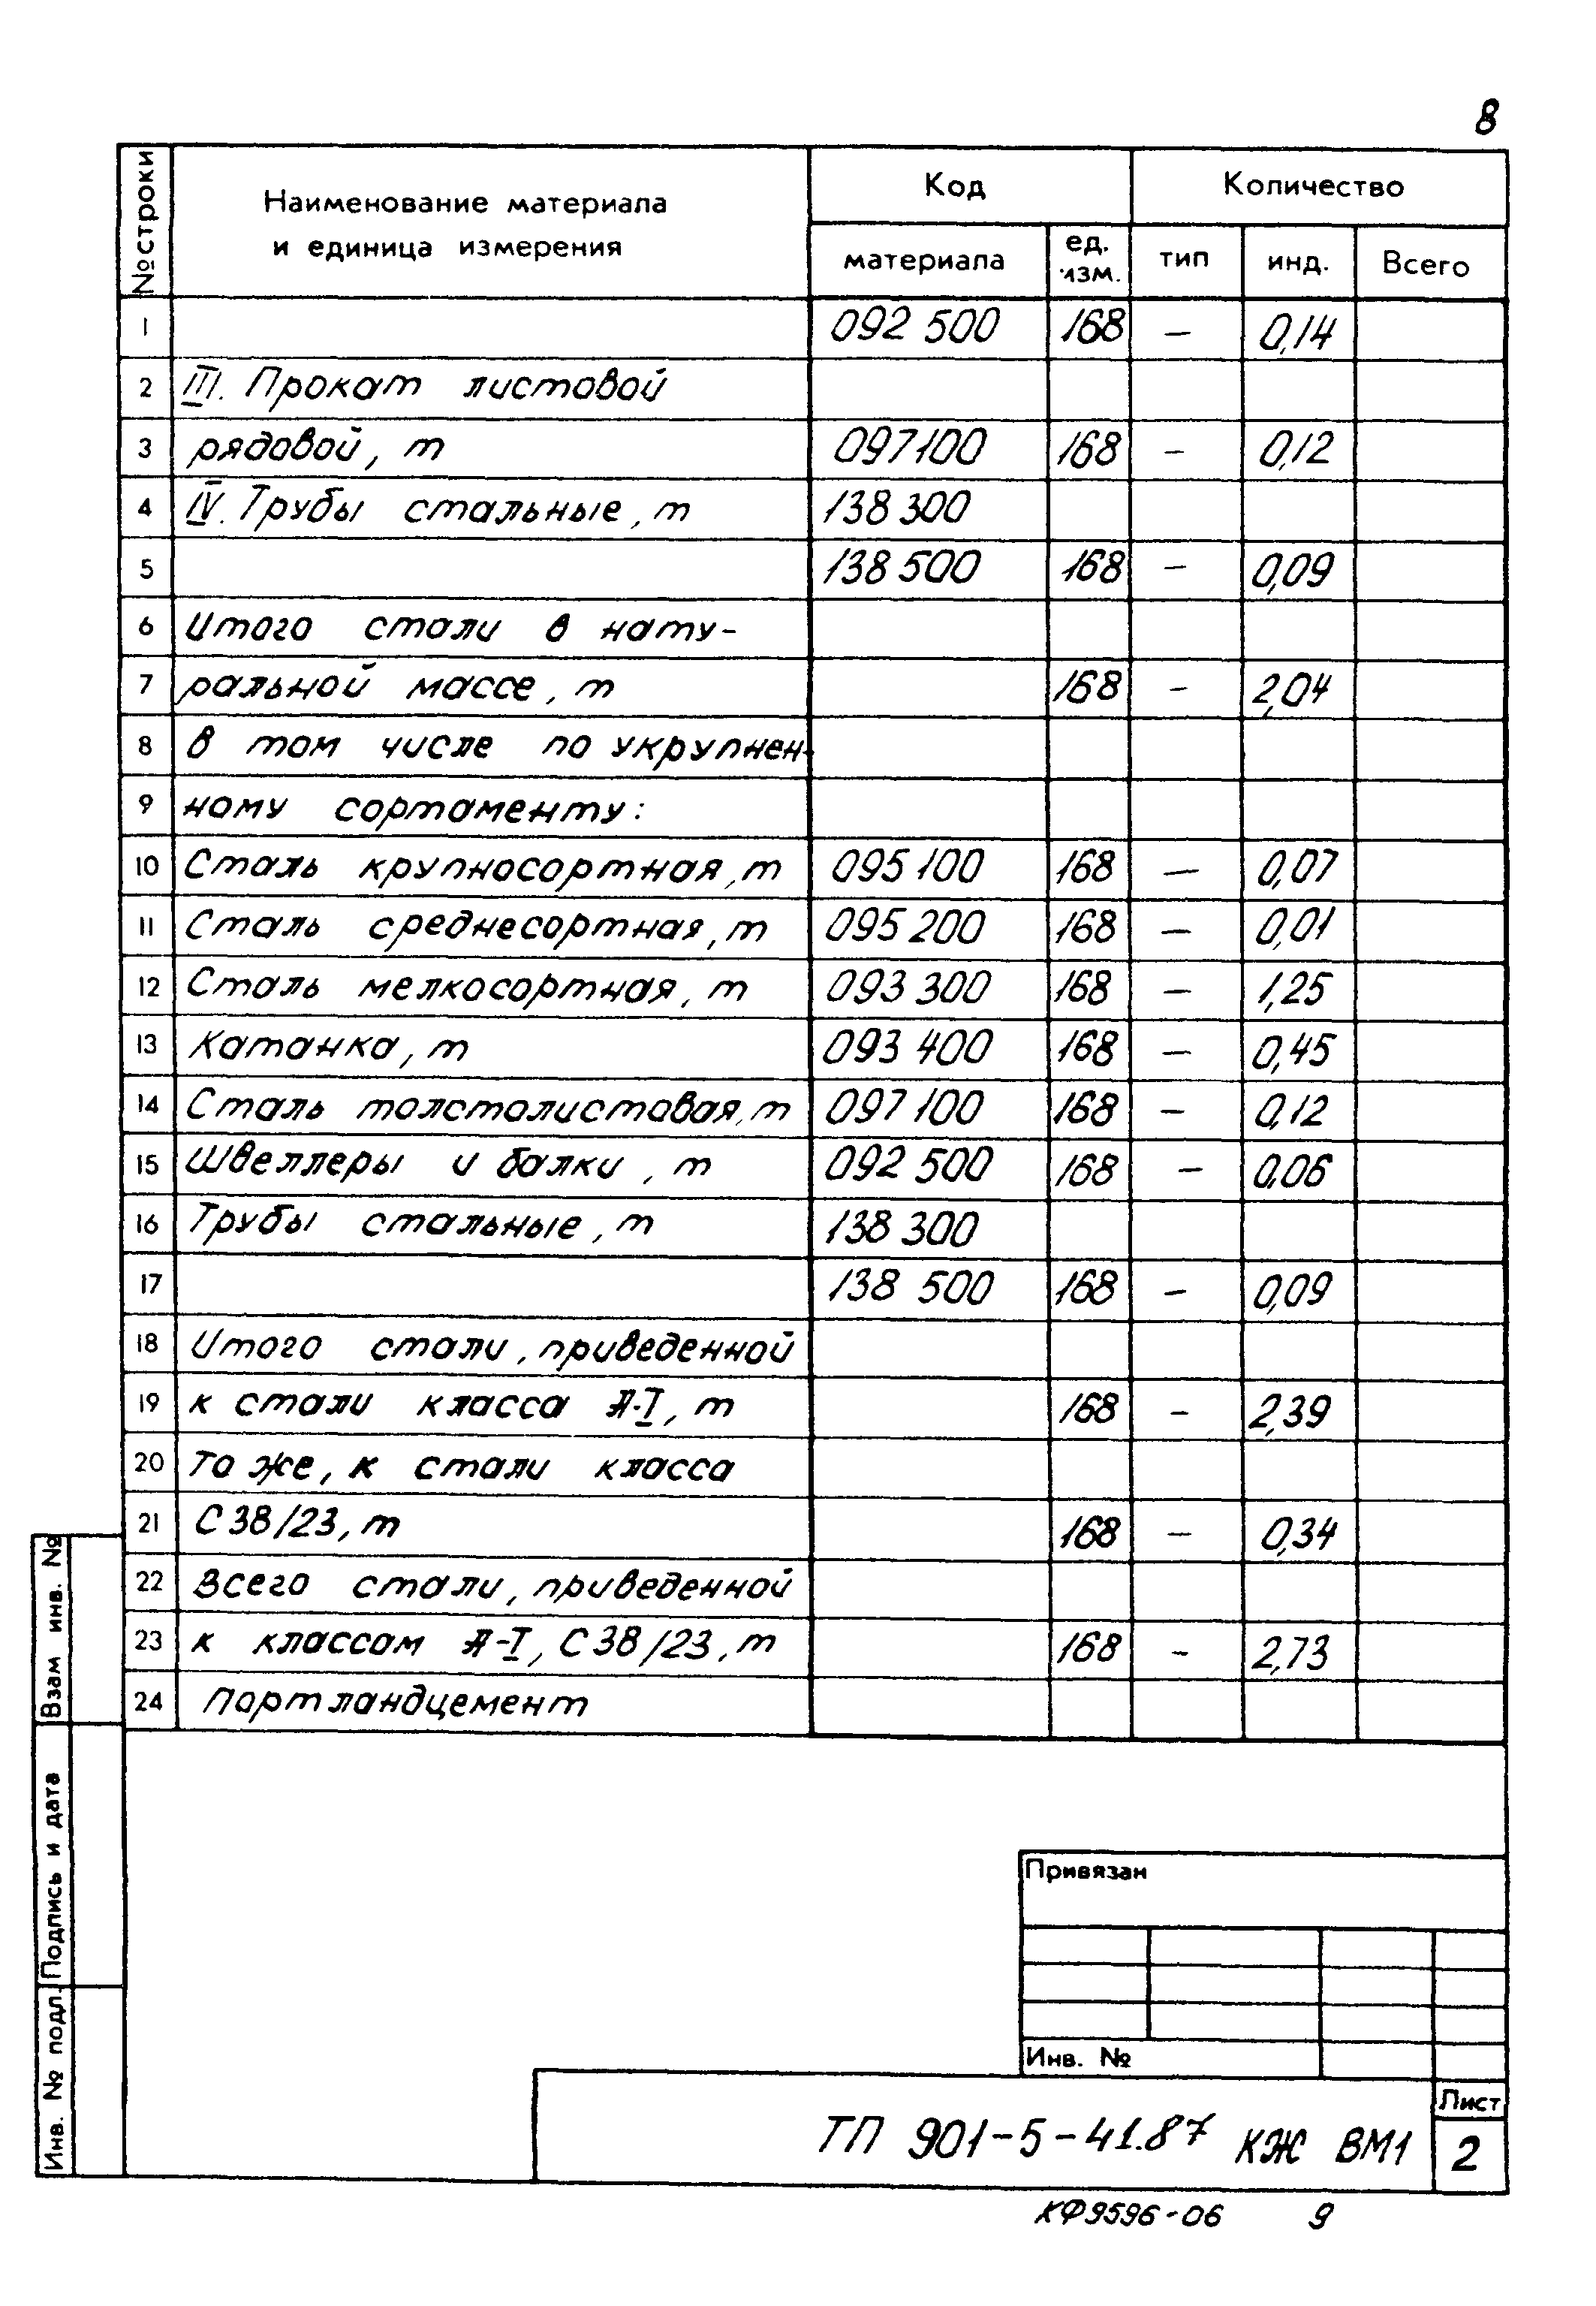 8
№ строки
Наименование материала
и единица измерения
Код
Количество
материала
ед.
изм.
тип
инд.
Всего
1 092 500 168 – 0,14
2 III. Прокат листовой
3 рядовой, т 097100 168 – 0,12
4 IV. Трубы стальные, т 138 300
5 138 500 168 – 0,09
6 Итого стали в нату-
7 ральной массе, т 168 – 2,04
8 в том числе по укрупнен-
9 ному сортаменту:
10 Сталь крупносортная, т 095 100 168 – 0,07
11 Сталь среднесортная, т 095 200 168 – 0,01
12 Сталь мелкосортная, т 093 300 168 – 1,25
13 Катанка, т 093 400 168 – 0,45
14 Сталь толстолистовая, т 097 100 168 – 0,12
15 Швеллеры и балки, т 092 500 168 – 0,06
16 Трубы стальные, т 138 300
17 138 500 168 – 0,09
18 Итого стали, приведенной
19 к стали класса А-I, т 168 – 2,39
20 То же, к стали класса
21 С 38/23, т 168 – 0,34
22 Всего стали, приведенной
23 к классам А-I, С 38/23, т 168 – 2,73
24 Портландцемент
Взам инв. №
Подпись и дата
Инв. № подл.
Привязан
Инв. №
ТП 901-5-41.87 КЖ ВМ1
Лист
2
КФ9596-06 9